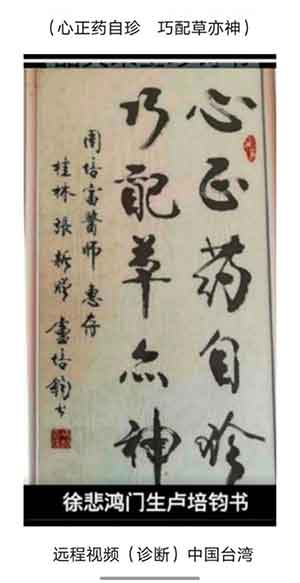 （心正药自珍 巧配草亦神）
心正药自珍
巧配草亦神
周培富醫師 惠存
桂林 張 盧培鈞书
徐悲鸿门生卢培钧书
远程视频（诊断）中国台湾